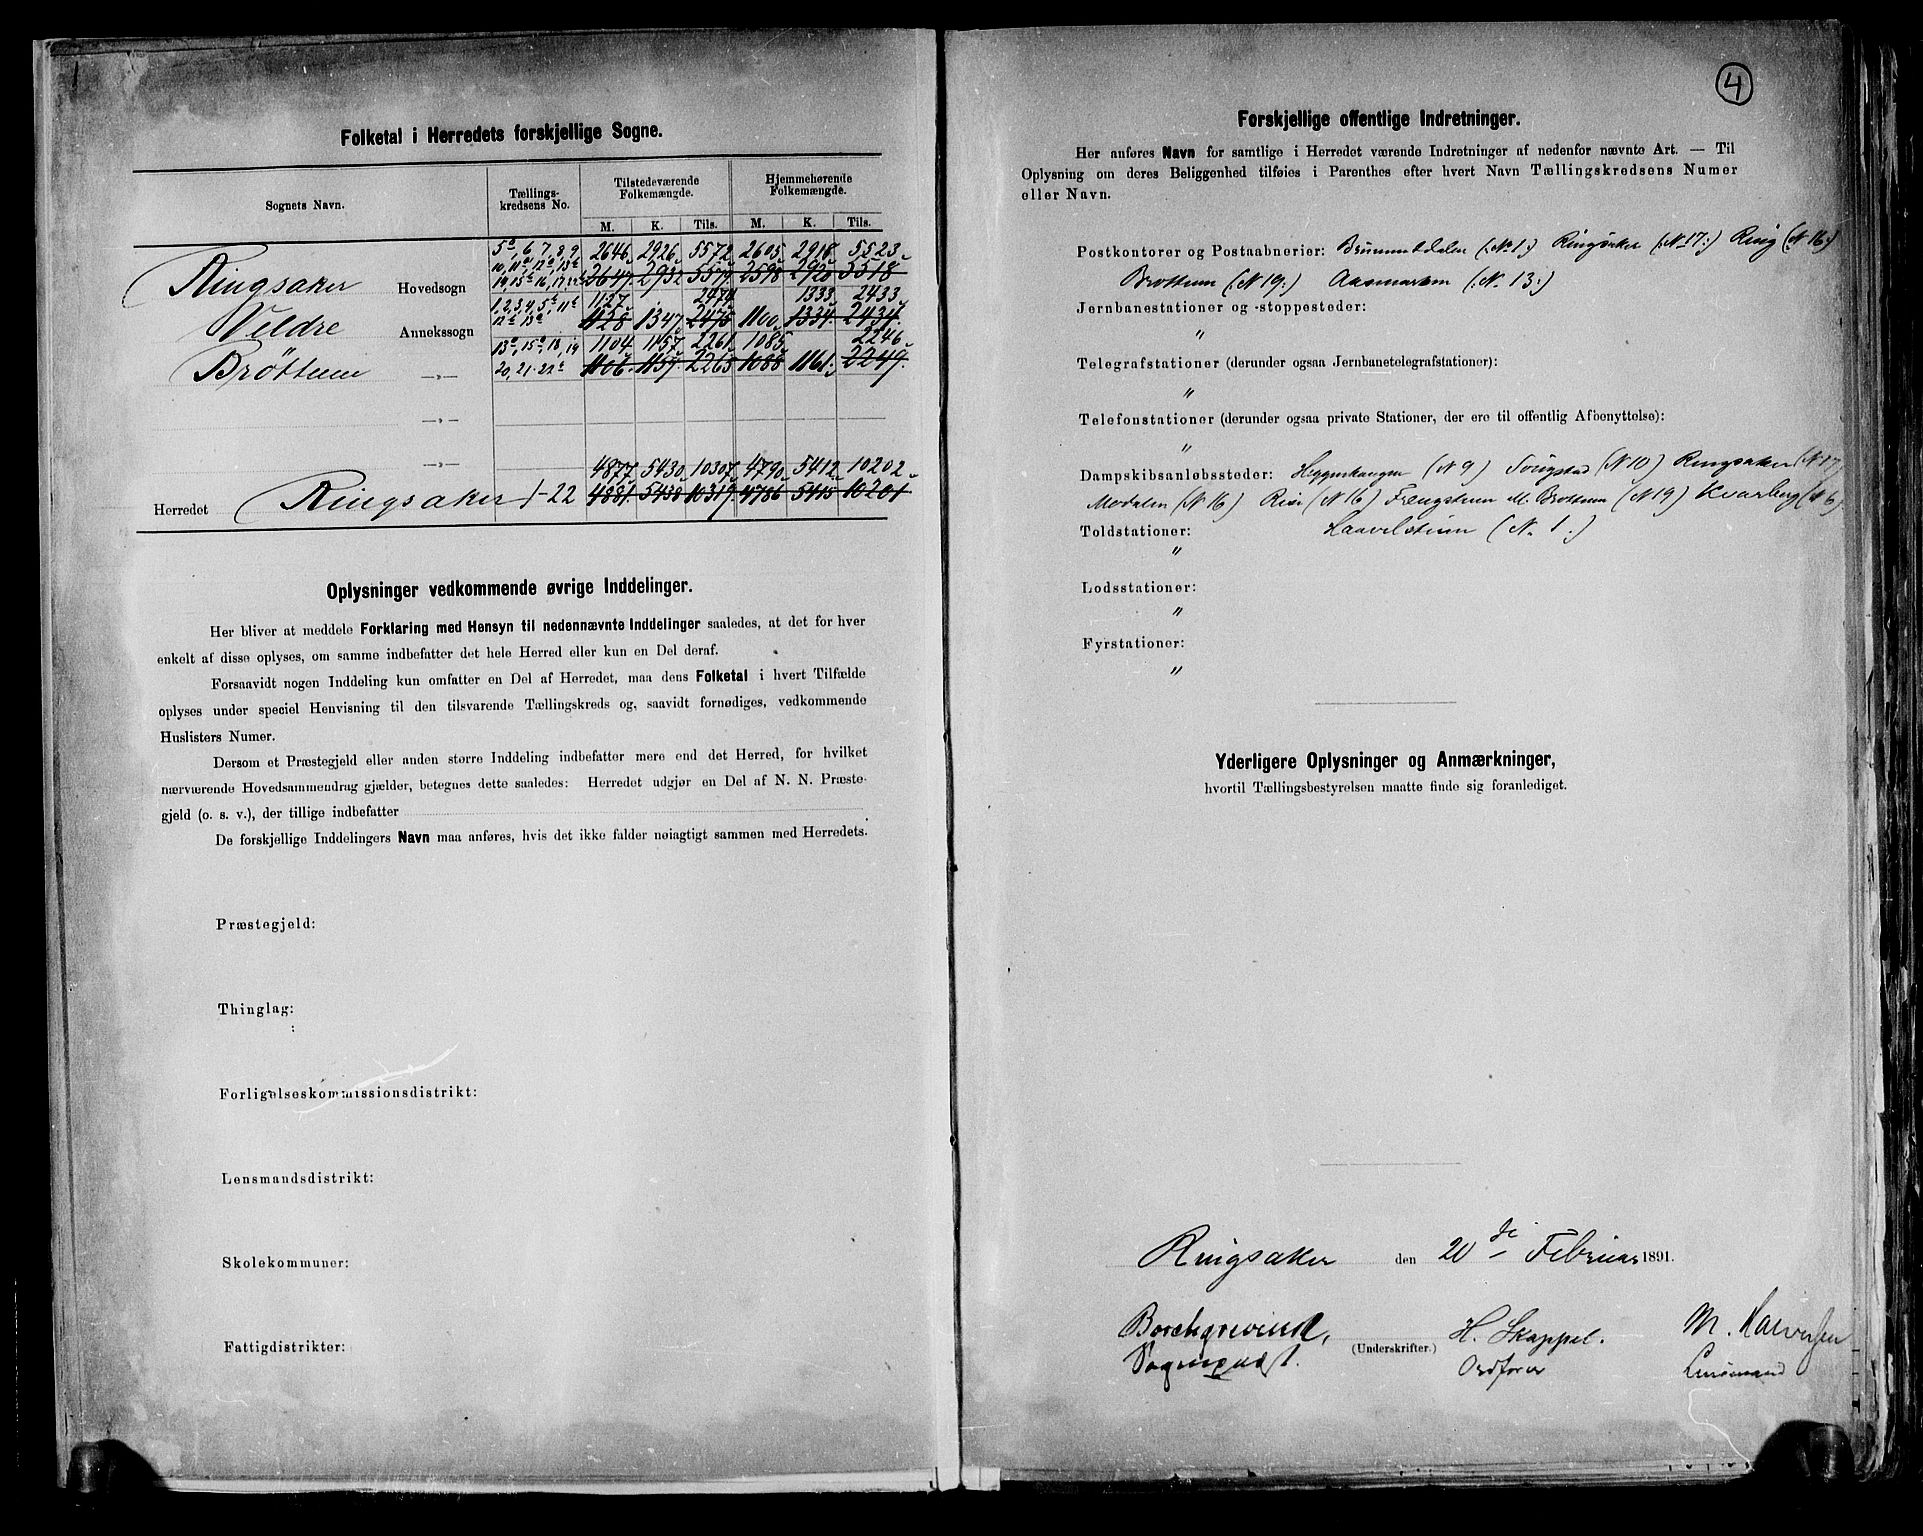 Folketal i Herredets forskjellige Sogne.
Sognets Navn.
Tællings-
kredsens No.
Tilstedeværende
Folkemængde.
Hjemmehørende
Folkemængde.
M. K. Tils. M. K. Tils.
5ᵃ, 6, 7, 8, 9 2646 2926 5572 2605 2918 5523
Ringsaker Hovedsogn 2647 2932 5579 2598 2920 5518
1, 2, 3, 4, 1127 2474 1333 2433
Veldre Annekssogn 1128 1347 2475 1100 1334 2434
18, 19 1104 1157 2261 1085 2246
Brøttum —„— 20, 21 1106 1159 2265 1088 1161 2249
—„—
—„—
4877 5430 10307 4790 5412 10202
Herredet Ringsaker 1-22 4881 5438 10319 4786 5415 10201
Oplysninger vedkommende øvrige Inddelinger.
Her bliver at meddele Forklaring med Hensyn til nedennævnte Inddelinger saaledes, at det for hver
enkelt af disse oplyses, om samme indbefatter det hele Herred eller kun en Del deraf.
Forsaavidt nogen Inddeling kun omfatter en Del af Herredet, maa dens Folketal i hvert Tilfælde
oplyses under speciel Henvisning til den tilsvarende Tællingskreds og, saavidt fornødiges, vedkommende
Huslisters Numer.
Dersom et Præstegjeld eller anden större Inddeling indbefatter mere end det Herred, for hvilket
nærværende Hovedsammendrag gjælder, betegnes dette saaledes: Herredet udgjør en Del af N. N. Præste-
gjeld (o. s. v.), der tillige indbefatter
De forskjellige Inddelingers Navn maa anføres, hvis det ikke falder nøiagtigt sammen med Herredets.
Præstegjeld:
Thinglag:
:
Forligelseskommissionsdistrikt:
Lensmandsdistrikt:
Skolekommuner:
Fattigdistrikter:
4
Forskjellige offentlige Indretninger.
Her anføres Navn for samtlige i Herredet værende Indretninger af nedenfor nævnte Art. — Til
Oplysning om deres Beliggenhed tilføies i Parenthes efter hvert Navn Tællingskredsens Numer
eller Navn.
Postkontorer og Postaabnerier: (:No 1:) Ringsaker (:No 17:) Ring (No 16:)
Brøttum (No 19:) Aasmarken (:No 13:)
Jernbanestationer og -stoppesteder:
"
Telegrafstationer (derunder ogsaa Jernbanetelegrafstationer):
"
Telefonstationer (derunder ogsaa private Stationer, der ere til offentlig Afbenyttelse):
"
Dampskibsanløbssteder: (No 9) (No 10) Ringsaker (No 17)
(No 16) (No 16) Brøttum (No 19) Kvarberg (No 6)
Toldstationer: (No 1:)
"
Lodsstationer:
"
Fyrstationer:
"
Yderligere Oplysninger og Anmærkninger,
hvortil Tællingsbestyrelsen maatte finde sig foranlediget.
Ringsaker den 20 de Februar 1891.
Borchgrevink, H. Skappel. M. Halvorsen
Sogneprest. (Underskrifter.) Ordfører Lensmand